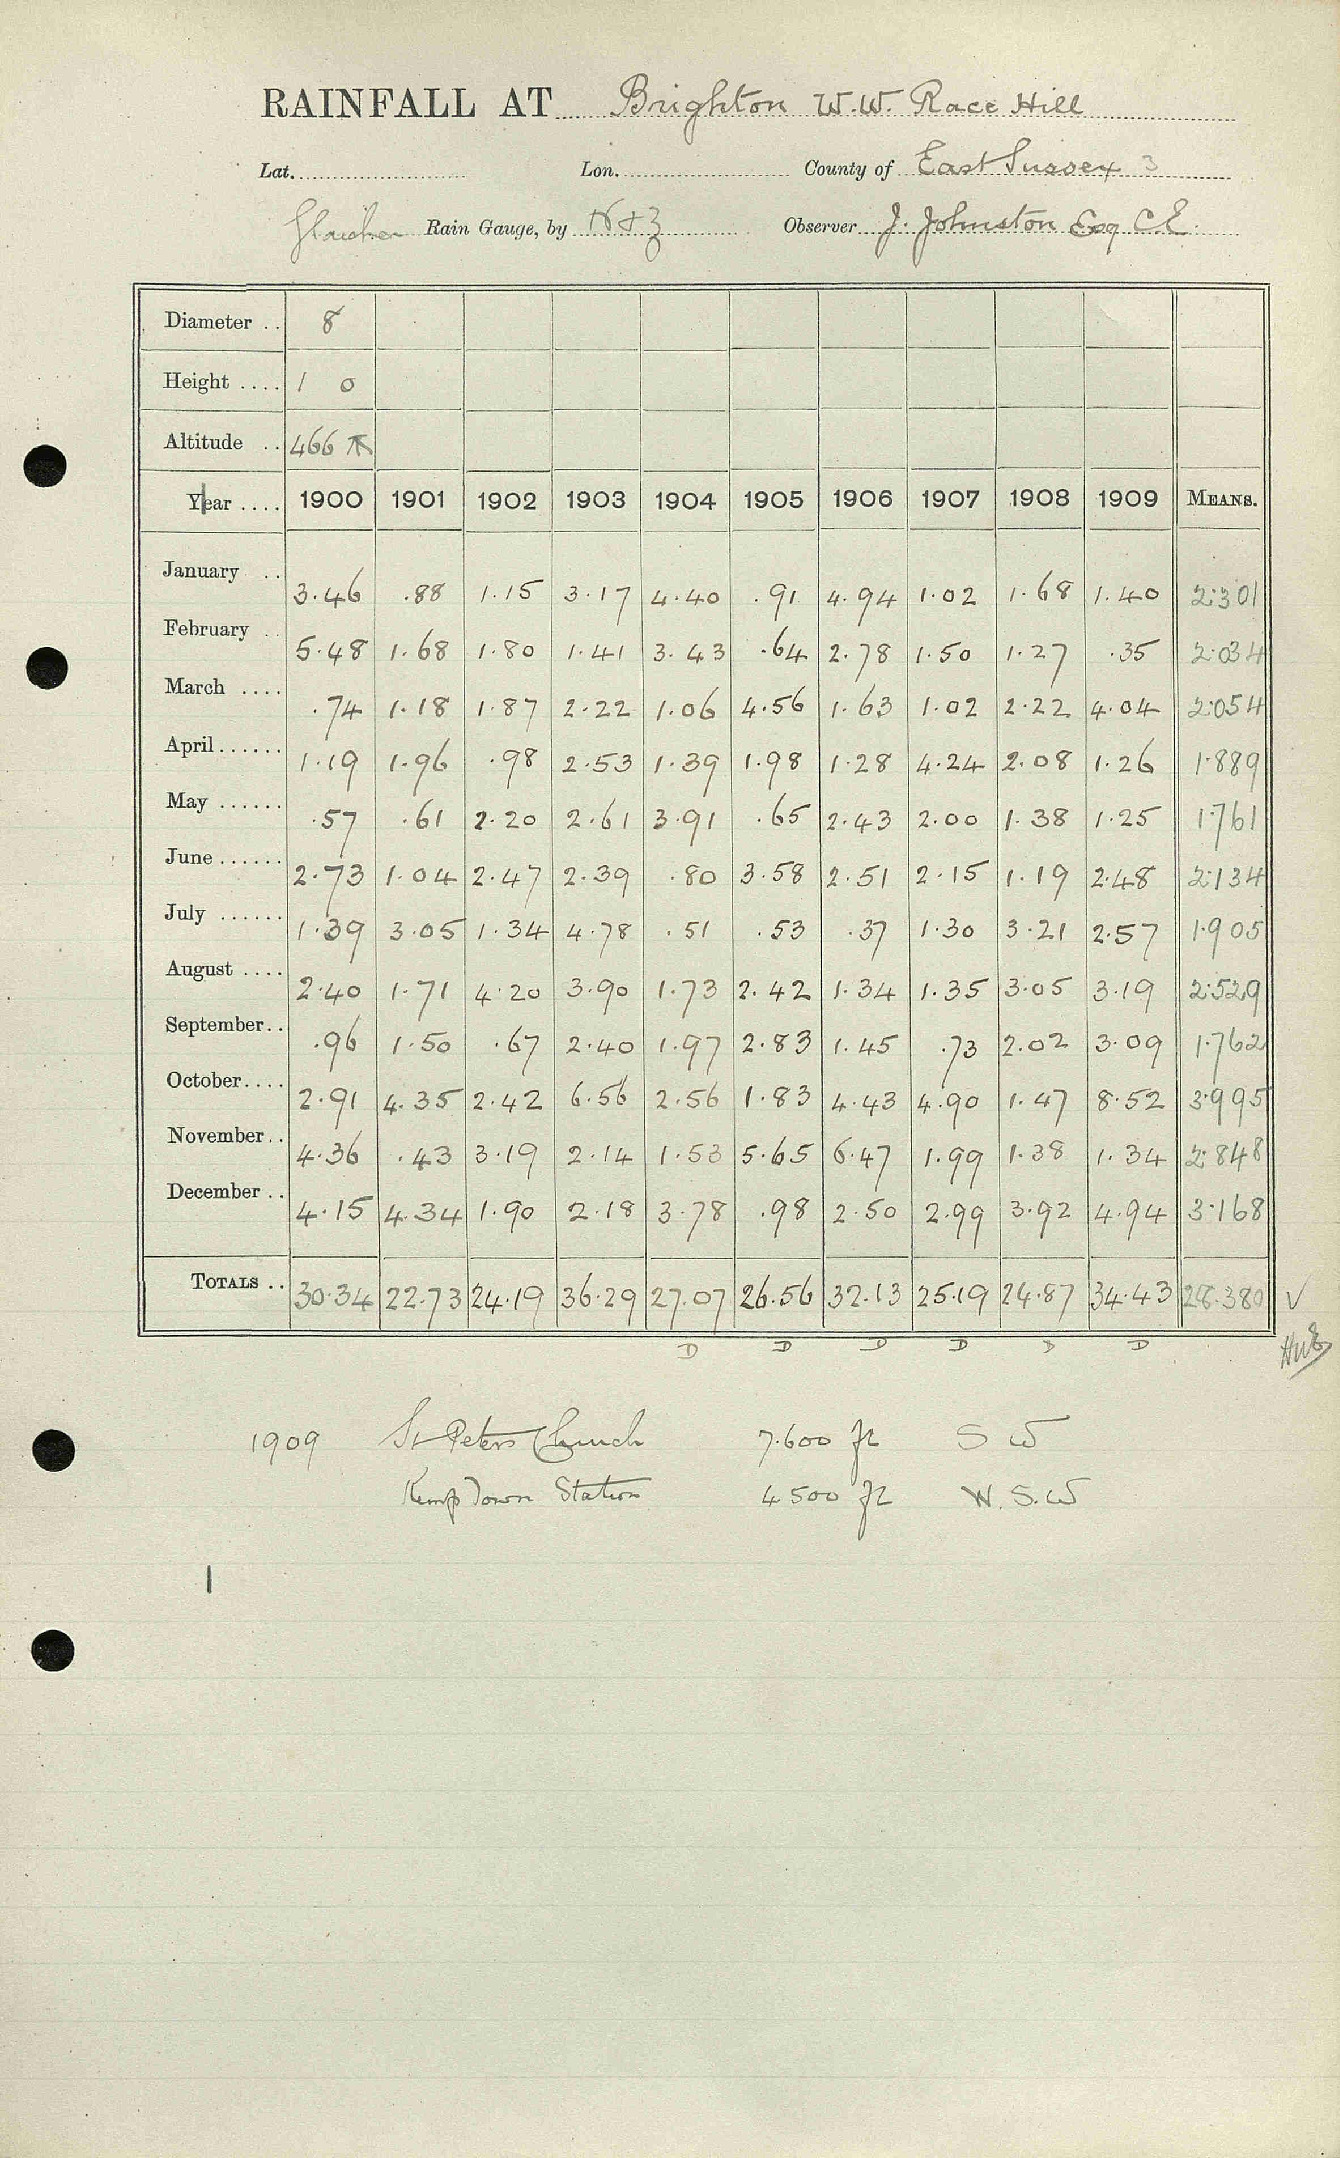 RAINFALL AT Brighton W.W. Race Hill
Lat. Lon. County of East Sussex 3
Glaisher Rain Gauge, by N & Z Observer J. Johnston Esq C.E.
Diameter .. 8
Height .... 1 0
Altitude .. 466
Year .... 1900 1901 1902 1903 1904 1905 1906 1907 1908 1909 MEANS.
January .. 3.46 .88 1.15 3.17 4.40 .91 4.94 1.02 1.68 1.40 2.301
February .. 5.48 1.68 1.80 1.41 3.43 .64 2.78 1.50 1.27 .35 2.034
March .... .74 1.18 1.87 2.22 1.06 4.56 1.63 1.02 2.22 4.04 2.054
April ...... 1.19 1.96 .98 2.53 1.39 1.98 1.28 4.24 2.08 1.26 1.889
May ...... .57 .61 2.20 2.61 3.91 .65 2.43 2.00 1.38 1.25 1.761
June ...... 2.73 1.04 2.47 2.39 .80 3.58 2.51 2.15 1.19 2.48 2.134
July ...... 1.39 3.05 1.34 4.78 .51 .53 .37 1.30 3.21 2.57 1.905
August .... 2.40 1.71 4.20 3.90 1.73 2.42 1.34 1.35 3.05 3.19 2.529
September.. .96 1.50 .67 2.40 1.97 2.83 1.45 .73 2.02 3.09 1.762
October.... 2.91 4.35 2.42 6.56 2.56 1.83 4.43 4.90 1.47 8.52 3.995
November.. 4.36 .43 3.19 2.14 1.53 5.65 6.47 1.99 1.38 1.34 2.848
December .. 4.15 4.34 1.90 2.18 3.78 .98 2.50 2.99 3.92 4.94 3.168
TOTALS .. 30.34 22.73 24.19 36.29 27.07 26.56 32.13 25.19 24.87 34.43 28.380 ✓
D D D D D D
1909 St Peters Church 7.600 ft S W
Kemp Town Station 4500 ft W. S. W